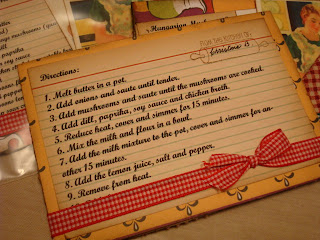 Hungarian Mu
from the kitchen of
Directions:
1. Melt butter in a pot.
2. Add onions and saute until tender.
3. Add mushrooms and saute until the mushrooms are cooked.
4. Add dill, paprika, soy sauce and chicken broth.
5. Reduce heat, cover and simmer for 15 minutes.
6. Mix the milk and flour in a bowl.
7. Add the milk mixture to the pot, cover and simmer for an-
other 15 minutes.
8. Add the lemon juice, salt and pepper.
9. Remove from heat.